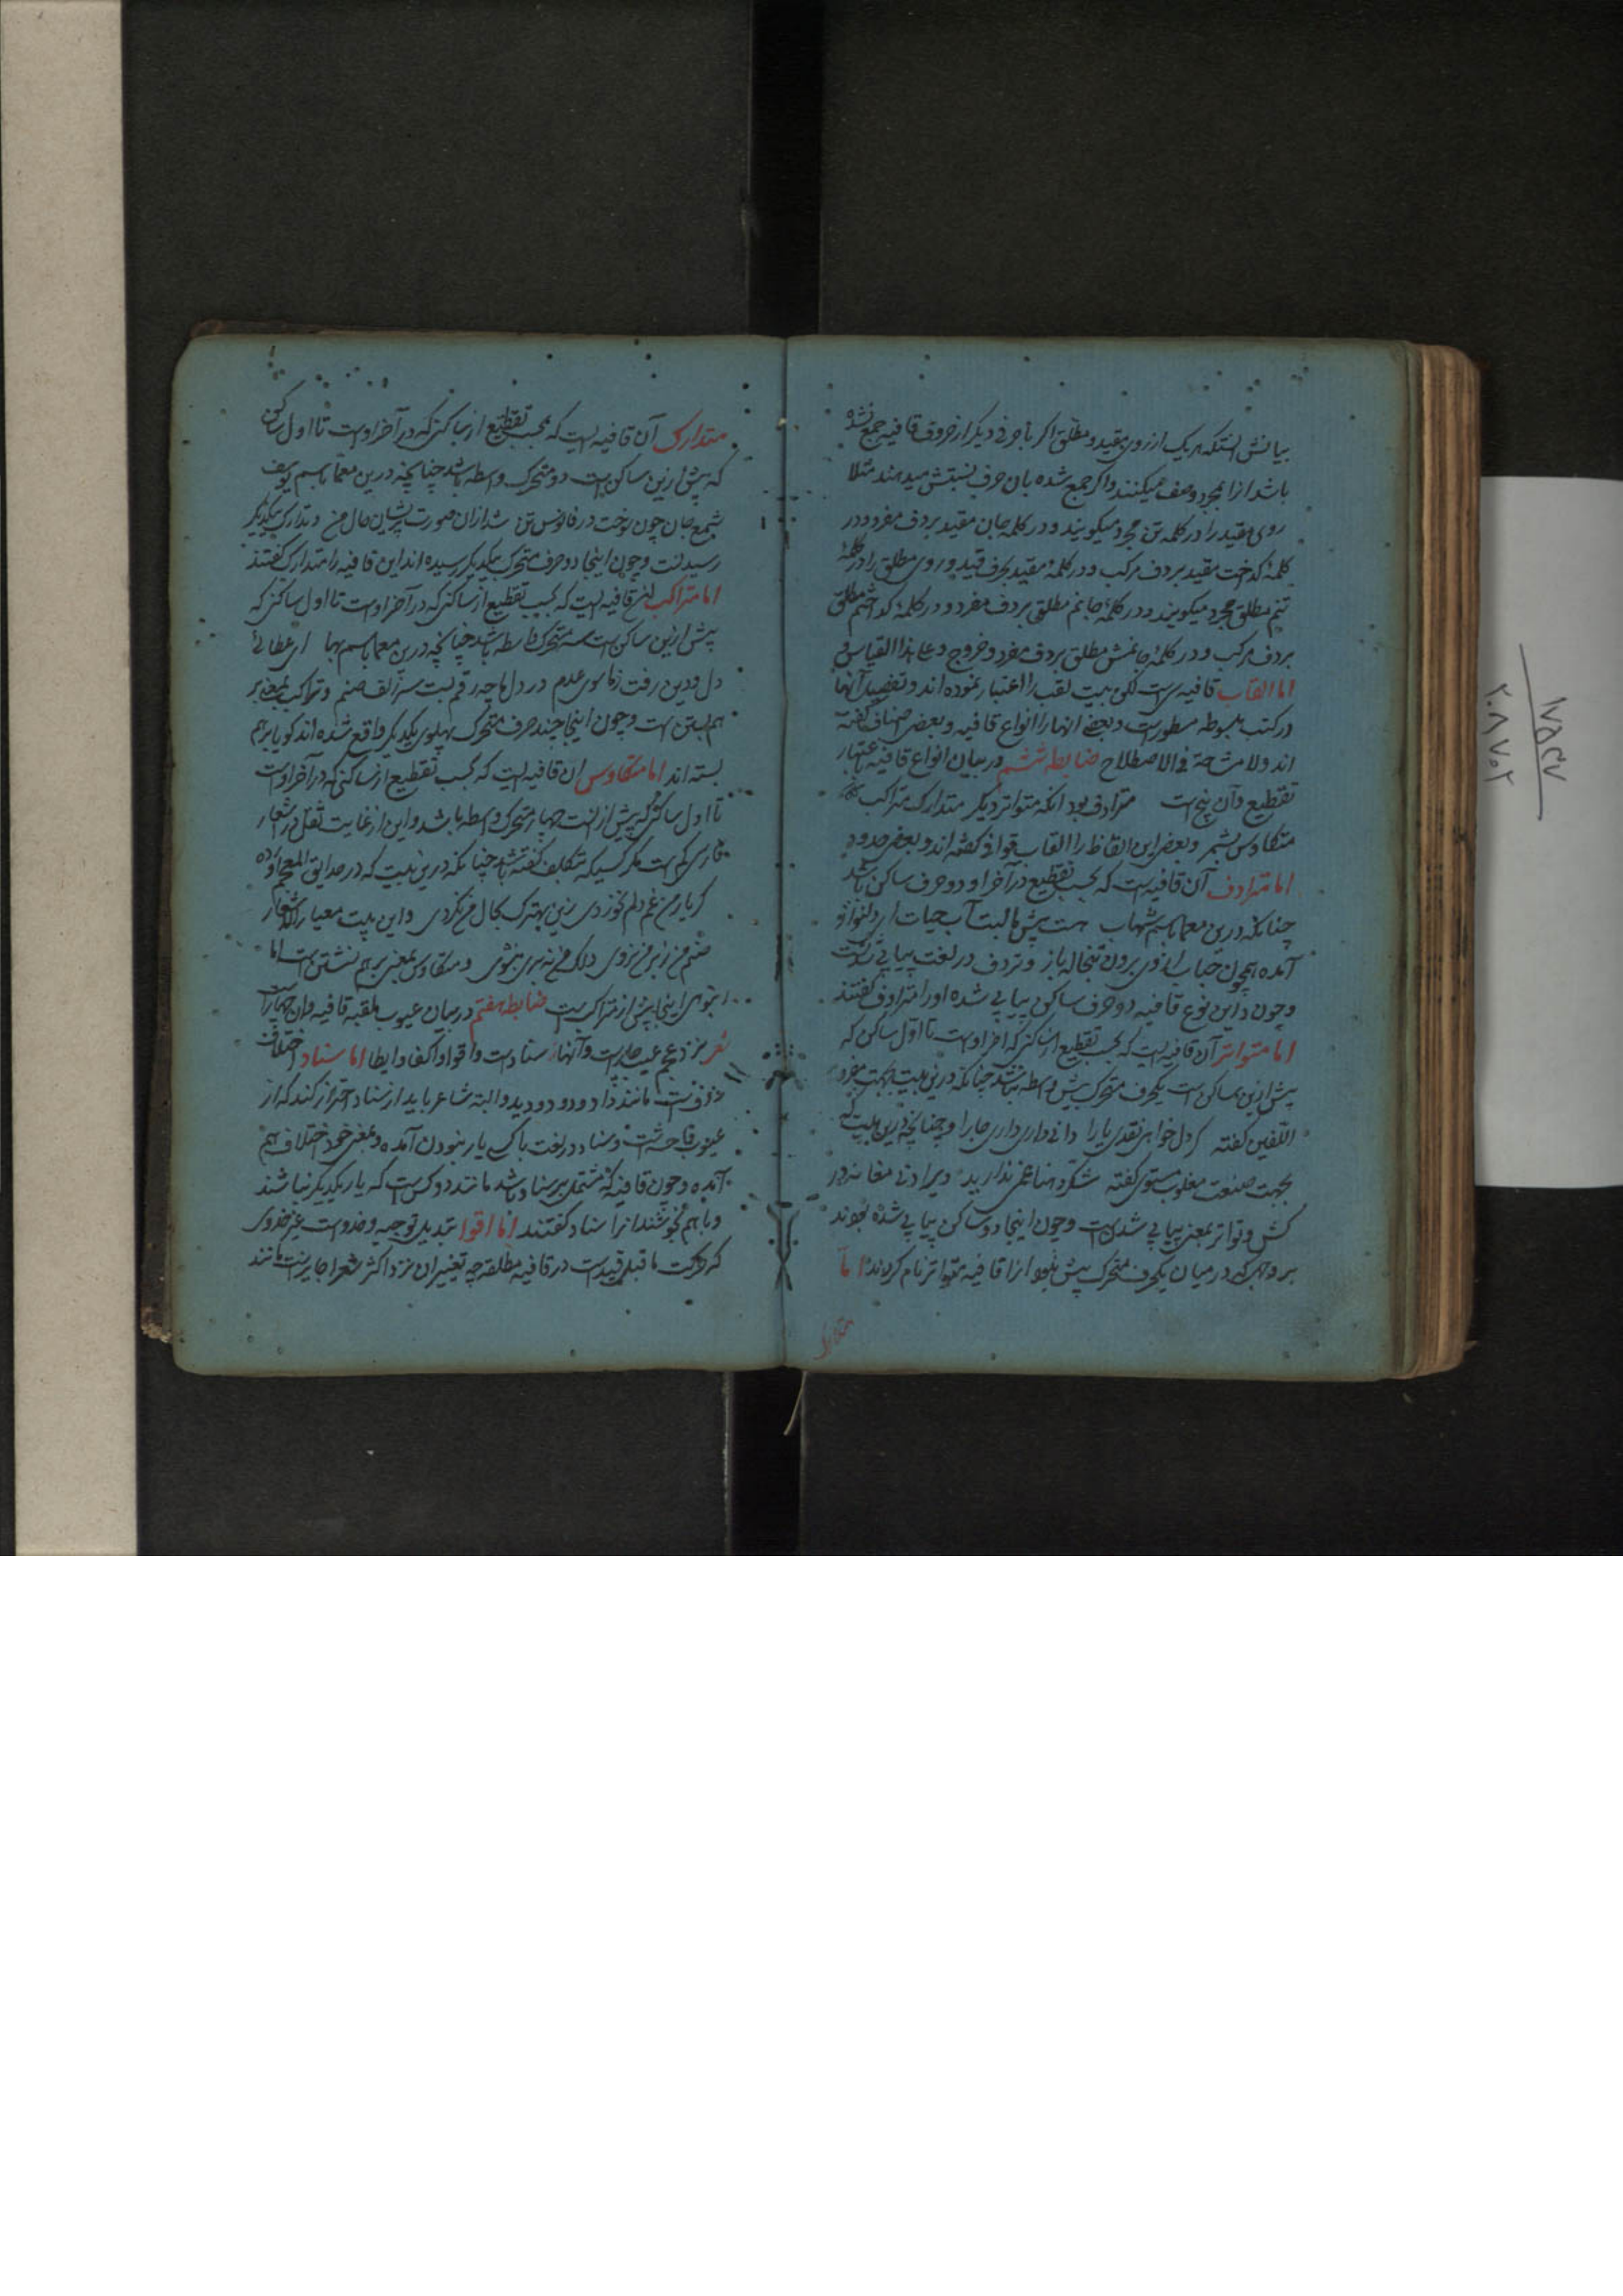 بیانش آنستکه هر یک از روی مقید و مطلق اگر با حرفی دیگر از حروف قافیه جمع نشده
باشد انرا مجرد وصف میکنند و اگر جمع شده بان حرف نسبتش میدهند مثلا
روی مقید را در کلمه تن مجرد میکویند و در کلمه جان مقید بردف مفرد و در
کلمهٔ کداخت مقید بردف مرکب و در کلمهٔ مقید بحرف قید و روی مطلق را در کلمهٔ
تنم مطلق مجرد میکویند و در کلمهٔ جانم مطلق بردف مفرد و در کلمهٔ کداختم مطلق
بردف مرکب و در کلمهٔ جانمش مطلق بردف مفرد و خروج و علی هذا القیاس
اما القاب قافیه بیست لقب را اعتبار نموده اند و تفصیل آنها
در کتب مبسوطه مسطورست و بعضی انها را انواع قافیه و بعضی اصناف کفته
اند ولا مشاحة فی الاصطلاح ضابطه ششم در بیان انواع قافیه باعتبار
تقطیع و آن پنج است مترادف بود انکه متواتر دیکر متدارک متراکب
متکاوس بشمر و بعضی این الفاظ را القاب قوافی کفته اند و بعضی حدود
اما مترادف آن قافیه است که بحسب تقطیع در آخر او دو حرف ساکن باشد
چنانکه درین معما باسم شهاب هست پیش لبت آب حیات ای دلنواز
آمده همچون حباب از وی برون تبخاله باز و ترادف در لغت پیاپی شدنست
و چون در این نوع قافیه دو حرف ساکن پیاپی شده او را مترادف کفتند
اما متواتر آن قافیه است که بحسب تقطیع از ساکنی که اخر اوست تا اول ساکن که
پیش ازین ساکن است یکحرف متحرک بیش واسطه نباشد چنانکه درین بیت بجهت
کفته کر دل خواهی نقدی یارا دانی داری داری جارا و چنانچه درین بیت که
بجهت صنعت مقلوب مستوی کفته شکر دهنا غمی ندارید دیر اد نی مغانه در
کش و تواتر بمعنی پیاپی شدن است و چون اینجا دو ساکن پیاپی شده بودند
بر وجهی که در میان یکحرف متحرک بیش نبود انرا قافیه متواتر نام کردند اما
متدارک
متدارک آن قافیه است که بحسب تقطیع از ساکنی که در آخر اوست تا اول ساکن
که پیش ازین ساکن است دو متحرک واسطه باشد چنانچه درین معما باسم یوسف
شمع جان چون سوخت در فانوس تن شد ازان صورت پریشان حال من و تدارک بیکدیکر
رسیدنست و چون اینجا دو حرف متحرک بیکدیکر رسیده اند این قافیه را متدارک کفتند
اما متراکب قافیه است که بحسب تقطیع از ساکنی که در آخر اوست تا اول ساکنی که
پیش ازین ساکن است سه متحرک واسطه باشد چنانکه درین معما باسم بها
دل و دین رفت سوی عدم در دل ما چه رقم بست سر زلف صنم و تراکب بمعنی بر
هم بستن است و چون اینجا چند حرف متحرک پهلوی یکدیکر واقع شده اند کویا بر هم
بسته اند اما متکاوس ان قافیه است که بحسب تقطیع از ساکنی که در آخر اوست
تا اول ساکنی که پیش از انست چهار متحرک واسطه باشد و این از غایت ثقل در اشعار
فارسی کم است مکر کسیکه بتکلف کفته باشد چنانکه درین بیت که در حدایق العجم آورده
کر یار من غم دلم بخوردی زین بهترک بحال من نکردی و این بیت معیار الاشعار
صنم من ز بر من بروی دلک من نبری بشوی و متکاوس بمعنی بر هم نشستن است اما
انبوهی اینجا بیش از متراکبست ضابطه هفتم در بیان عیوب ملقبه قافیه وان چهارست
نزد عجم عیب چهارست و آنها سنادست و اقوا و اکفا و ایطا اما سناد اختلاف
حذوفست مانند داد و دود و دید و البته شاعر باید از سناد احتراز کند که از
عیوب فاحشه است و سناد در لغت با کسی یار نبودن آمده و بمعنی خود اختلاف هم
آمده و چون قافیه که مشتمل بر سناد باشد مانند دو کس است که یار یکدیکر نباشند
و باهم نخوشند انرا سناد کفتند اما اقوا تبدیل توجیه و حذوست غیر حذوی
که حرکت ماقبل قیدست در قافیه مطلقه چه تغییر ان نزد اکثر شعرا جایزست مانند
۱۱
۱۷۵۳۷
۲۰۸۷۰۲